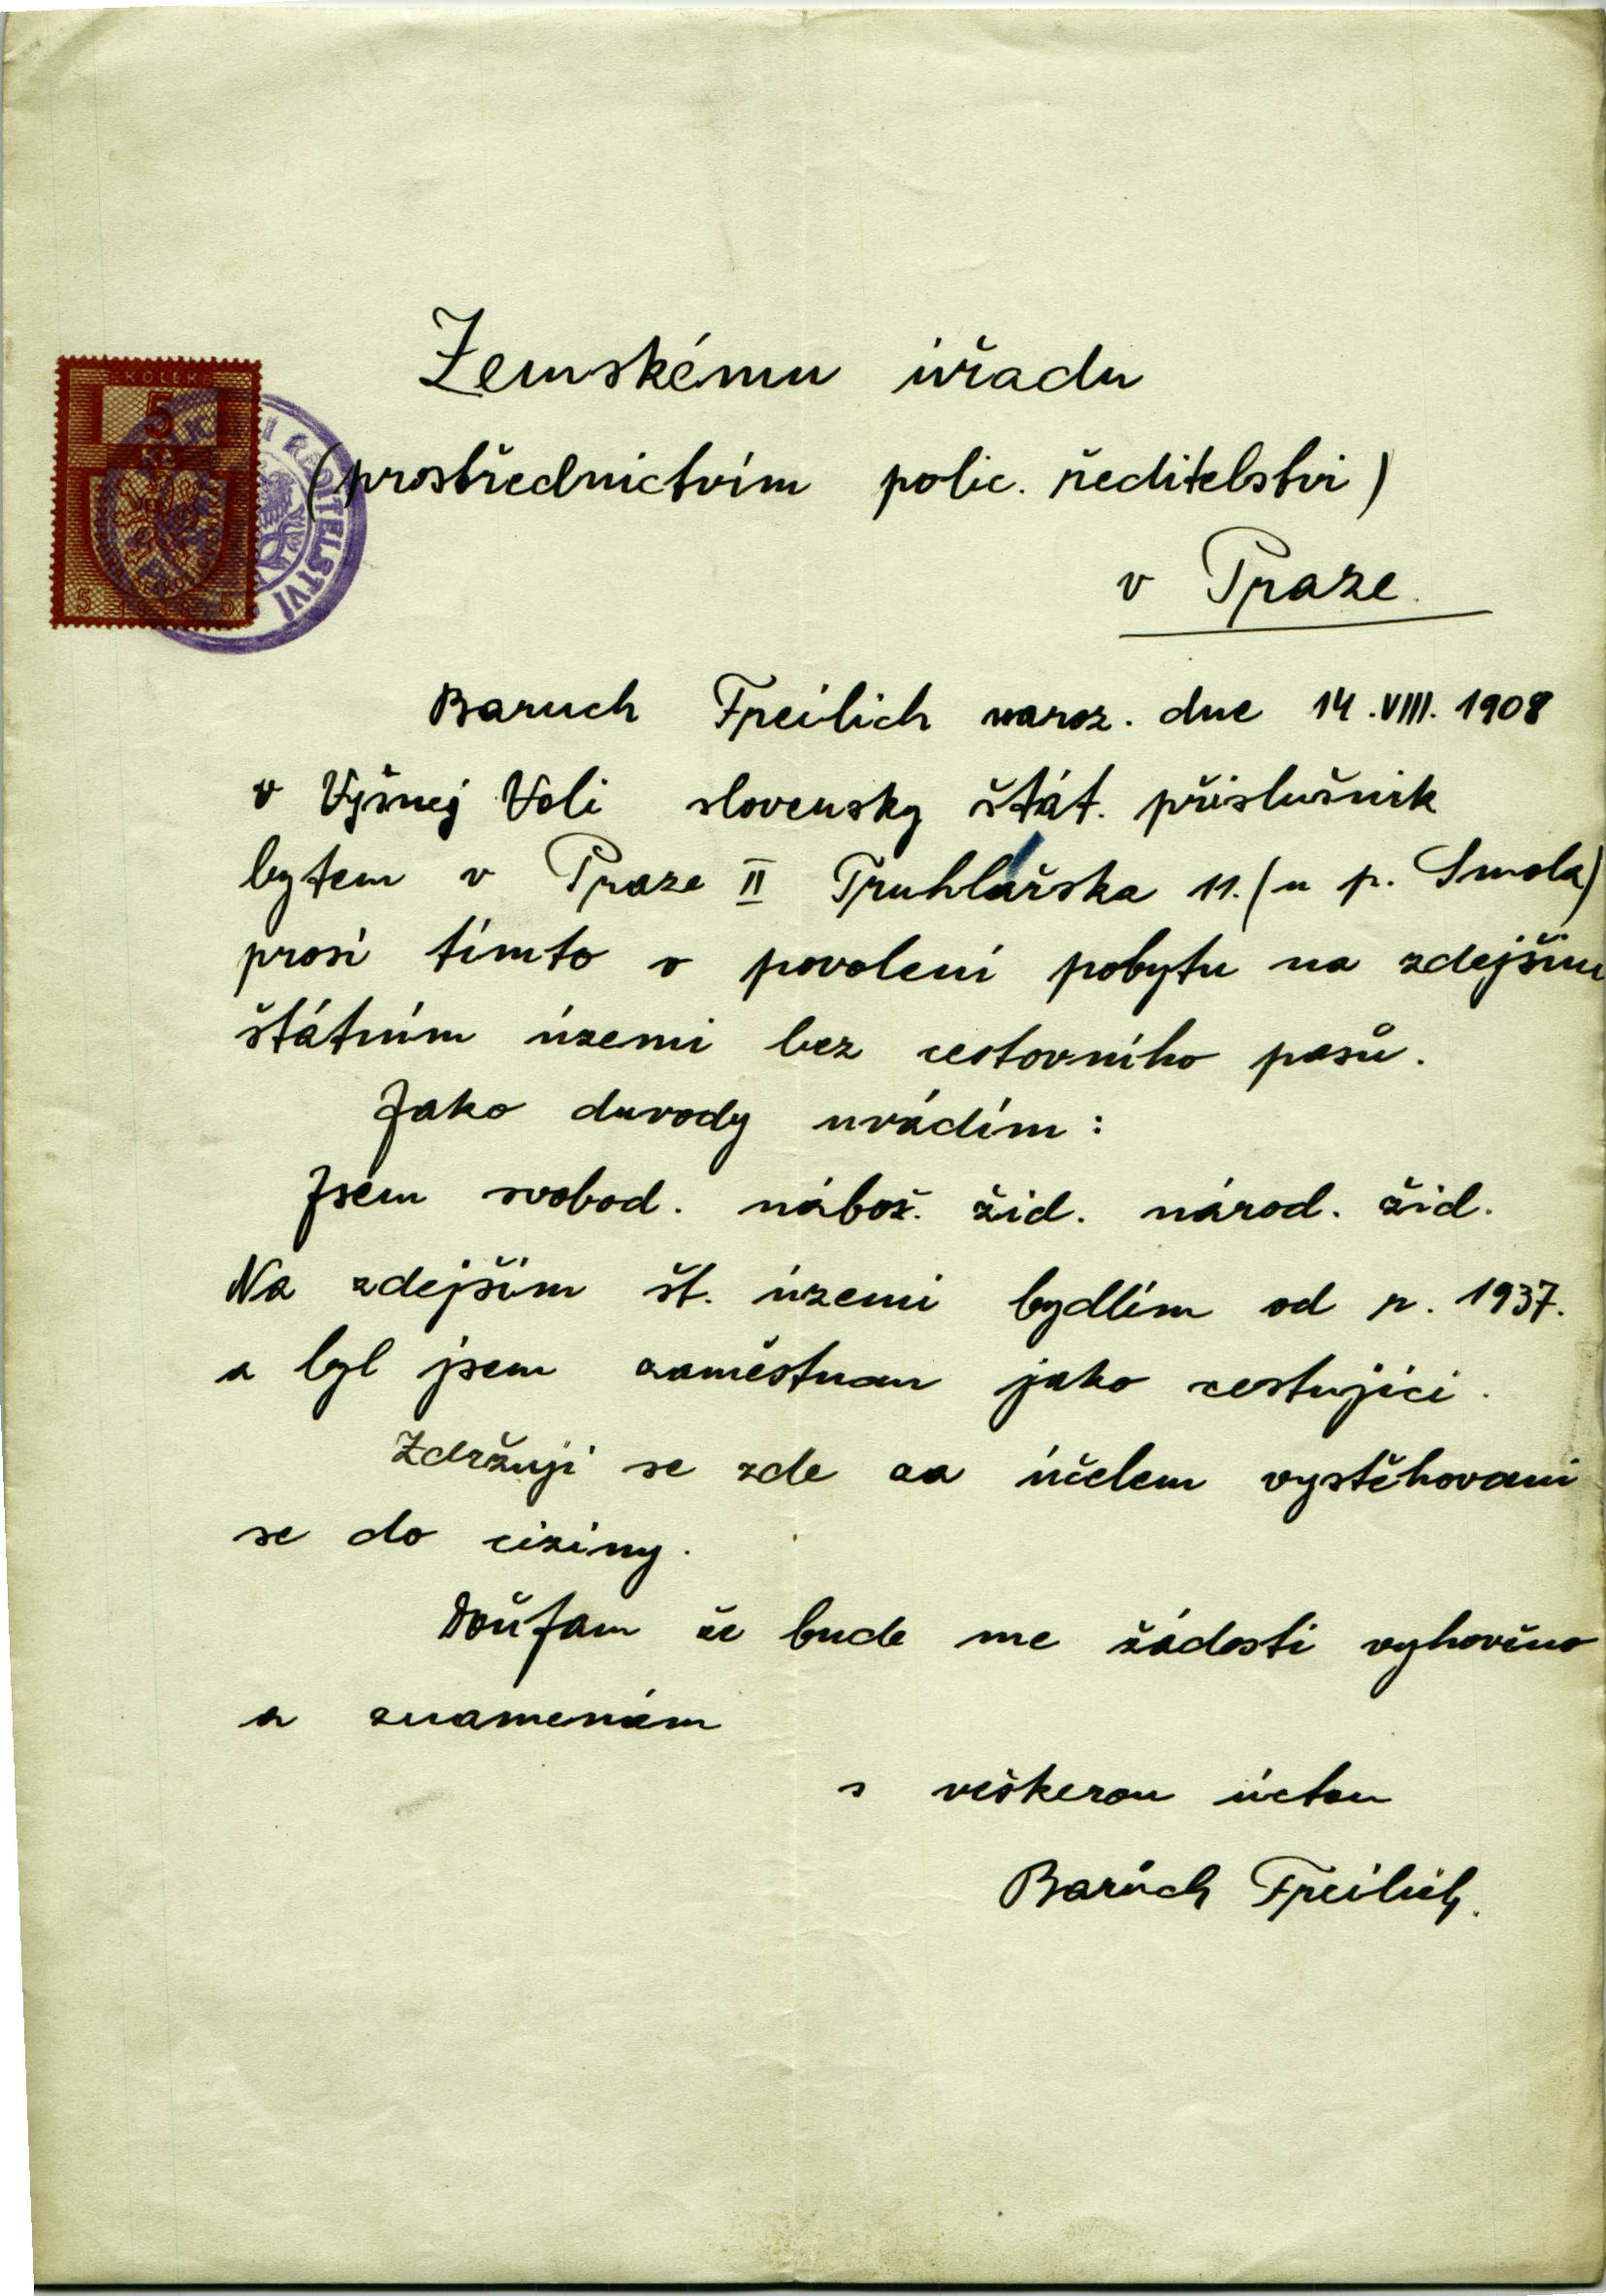 KOLEK
5
Kč
5 5
ŘEDITELSTVÍ
Zemskému úřadu
(prostřednictvím polic. ředitelství)
v Praze.
Baruch Freilich naroz. dne 14.VIII.1908
v Vyšnej Voli slovensky štát. příslušnik
bytem v Praze II Truhlářska 11. (u p. Smola)
prosí tímto o povolení pobytu na zdejším
štátním území bez cestovního pasů.
Jako duvody uvádím:
Jsem svobod. nábož. žid. národ. žid.
Na zdejším št. území bydlím od r. 1937.
a byl jsem zaměstnan jako cestující.
Zdržuji se zde za účelem vystěhovani
se do ciziny.
Doufam že bude me žádosti vyhověno
a znamenám
s veškerou úctou
Barúch Freilich.